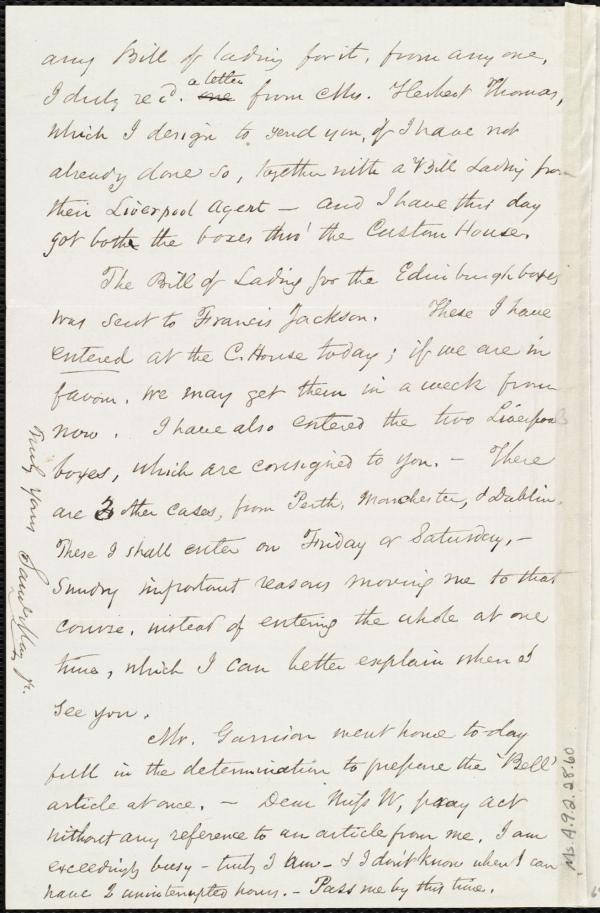 any Bill of lading for it, from any one,
I duly rec'd. a letter one from Mrs. Herbert Thomas,
which I design to send you, if I have not
already done so, together with a Bill Lading from
their Liverpool Agent — and I have this day
got both the boxes thro' the Custom House.
The Bill of Lading for the Edinburgh boxes
was sent to Francis Jackson. These I have
entered at the C. House today; if we are in
favour, we may get them in a week from
now. I have also entered the two Liverpool
boxes, which are consigned to you. — There
are 3 other cases, from Perth, Manchester, & Dublin.
These I shall enter on Friday or Saturday, —
Sundry important reasons moving me to that
course, instead of entering the whole at one
time, which I can better explain when I
see you.
Mr. Garrison went home to-day
full in the determination to prepare the 'Bell'
article at once. — Dear Miss W, pray act
without any reference to an article from me. I am
exceedingly busy — truly I am — & I don't know when I can
have 2 uninterrupted hours. — Pass me by this time.
Truly Yours Saml. May, Jr.
Ms. A.9.2.28.60